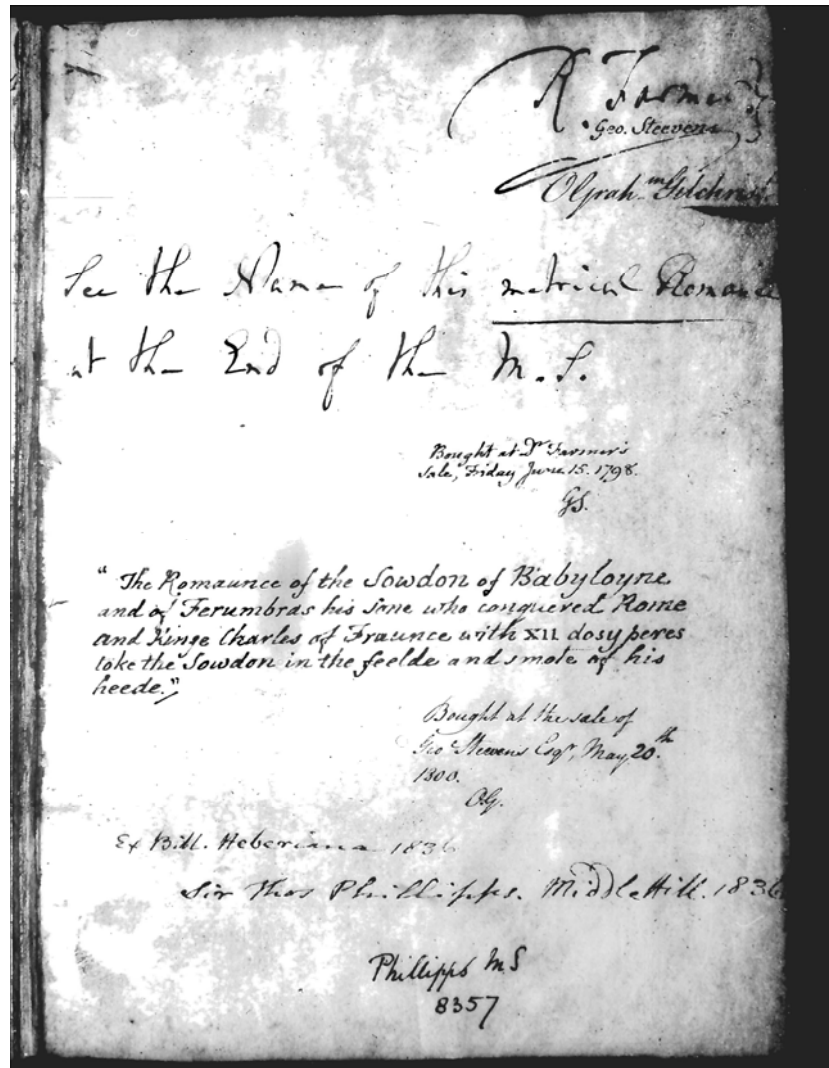 R. Farmer
Geo. Steevens
See the Name of this metrical Romance
at the End of the M.S.
Bought at Dr Farmer's
Sale, Friday June 15. 1798.
GS.
"The Romaunce of the Sowdon of Babyloyne
and of Ferumbras his sone who conquered Rome
and Kinge Charles of Fraunce with XII dosyperes
toke the Sowdon in the feelde and smote of his
heede."
Bought at the sale of
Geo Steevens Esqr, May 20.th
1800.
O.G.
Ex Bibl. Heberiana 1836
Sir Thos Phillipps. Middle Hill. 1836
Phillipps MS
8357